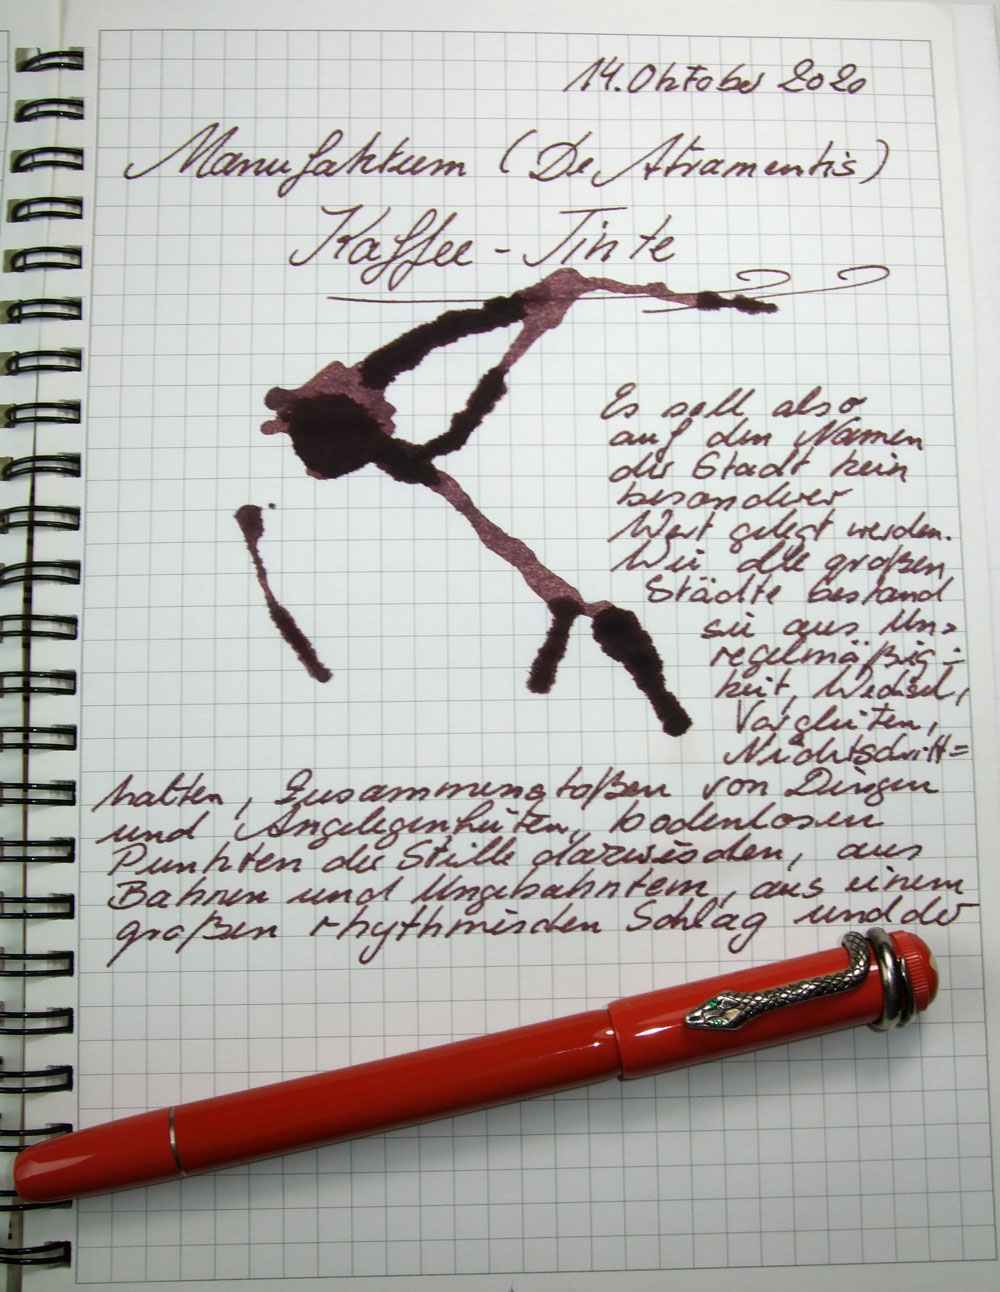 14. Oktober 2020
Manufaktum (De Atramentis)
Kaffee-Tinte
Es soll also
auf den Namen
der Stadt kein
besonderer
Wert gelegt werden.
Wie alle großen
Städte bestand
sie aus Un=
regelmäßig=
keit, Wechsel,
Vorgleiten,
Nichtschritt=
halten, Zusammenstoßen von Dingen
und Angelegenheiten, bodenlosen
Punkten der Stille dazwischen, aus
Bahnen und Ungebahntem, aus einem
großen rhythmischen Schlag und der